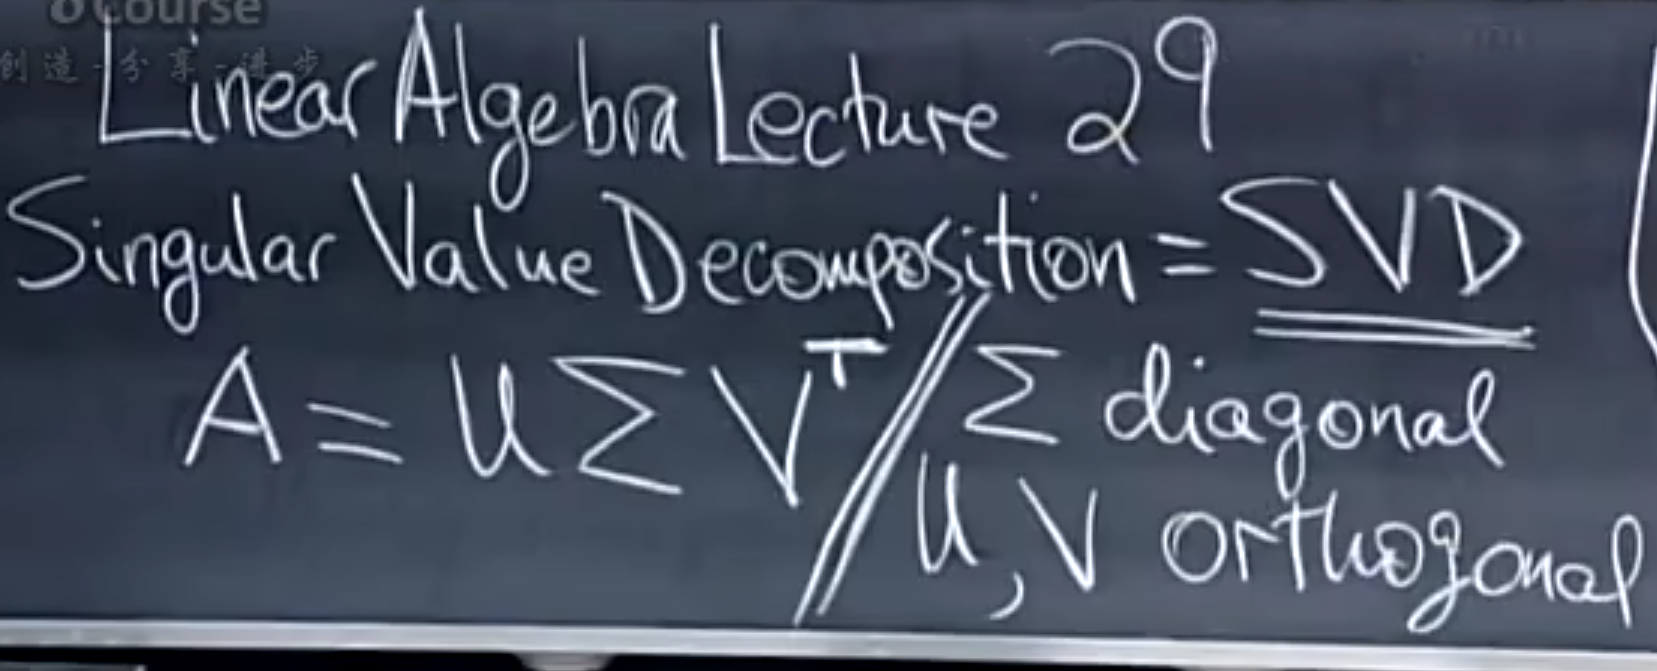 Course
创造-分享-进步
Linear Algebra Lecture 29
Singular Value Decomposition = SVD
A = U Σ V^T // Σ diagonal
U, V orthogonal